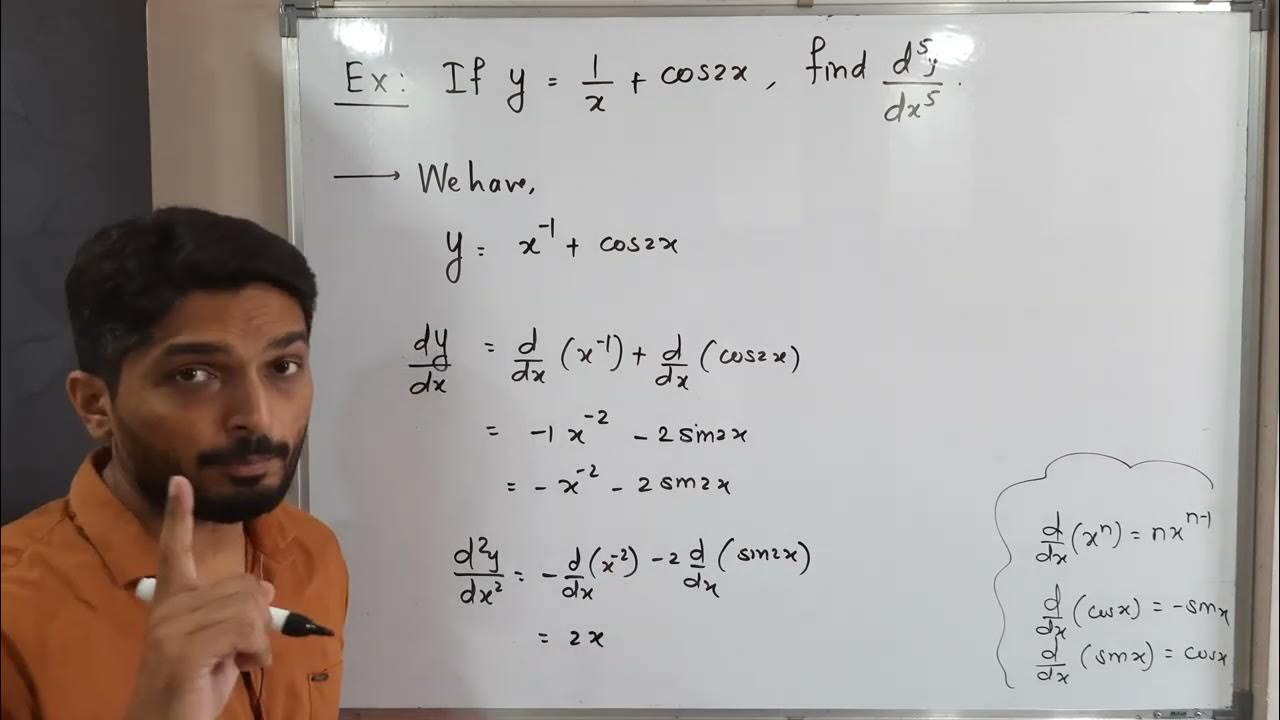 Ex: If y = 1/x + cos2x, find d⁵y/dx⁵.
⟶ We have,
y = x⁻¹ + cos2x
dy/dx = d/dx (x⁻¹) + d/dx (cos2x)
= -1 x⁻² - 2 sin2x
= - x⁻² - 2 sin2x
d²y/dx² = - d/dx (x⁻²) - 2 d/dx (sin2x)
= 2x
d/dx (xⁿ) = nxⁿ⁻¹
d/dx (cosx) = -sinx
d/dx (sinx) = cosx